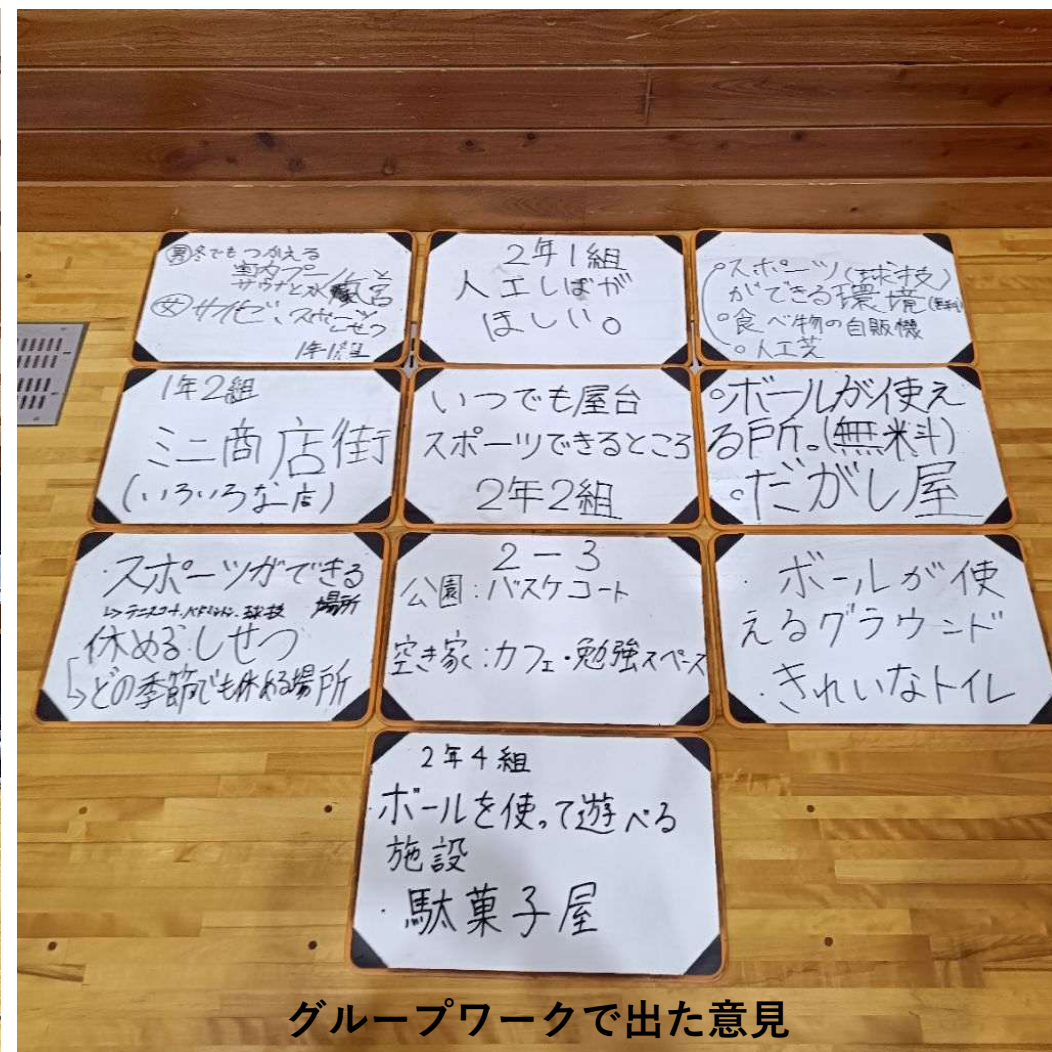 男 冬でもつかえる
室内プールと
サウナと水風呂
女 サイゼ、スポーツ
しせつ
1年1組
2年1組
人工しばが
ほしい。
○スポーツ(球技)
ができる環境(無料)
○食べ物の自販機
○人工芝
1年2組
ミニ商店街
(いろいろな店)
いつでも屋台
スポーツできるところ
2年2組
○ボールが使え
る所。(無料)
○だがし屋
・スポーツができる
場所
↳テニスコート、バドミントン、球技
休めるしせつ
↳どの季節でも休める場所
2-3
公園:バスケコート
空き家:カフェ・勉強スペース
・ボールが使
えるグラウンド
・きれいなトイレ
2年4組
・ボールを使って遊べる
施設
・駄菓子屋
グループワークで出た意見